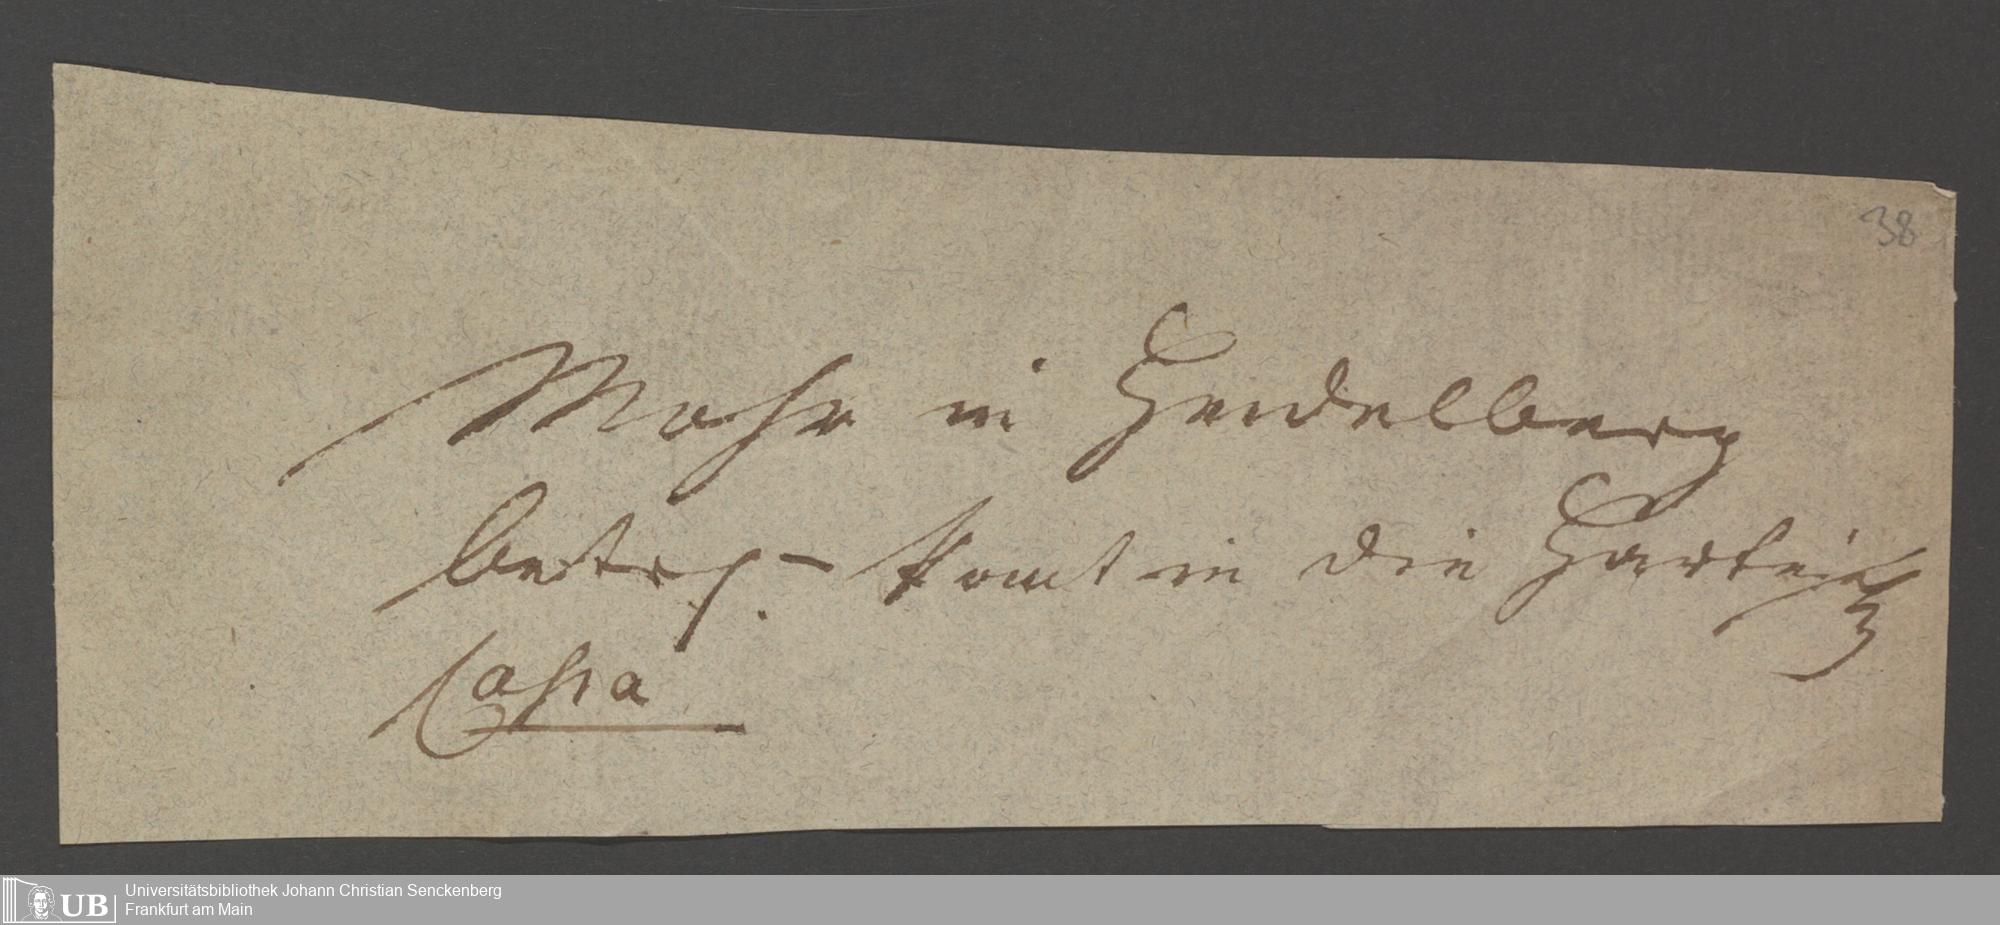 38
Mohr in Heidelberg
betrf. – komt in die
Cassa
UB
Universitätsbibliothek Johann Christian Senckenberg
Frankfurt am Main